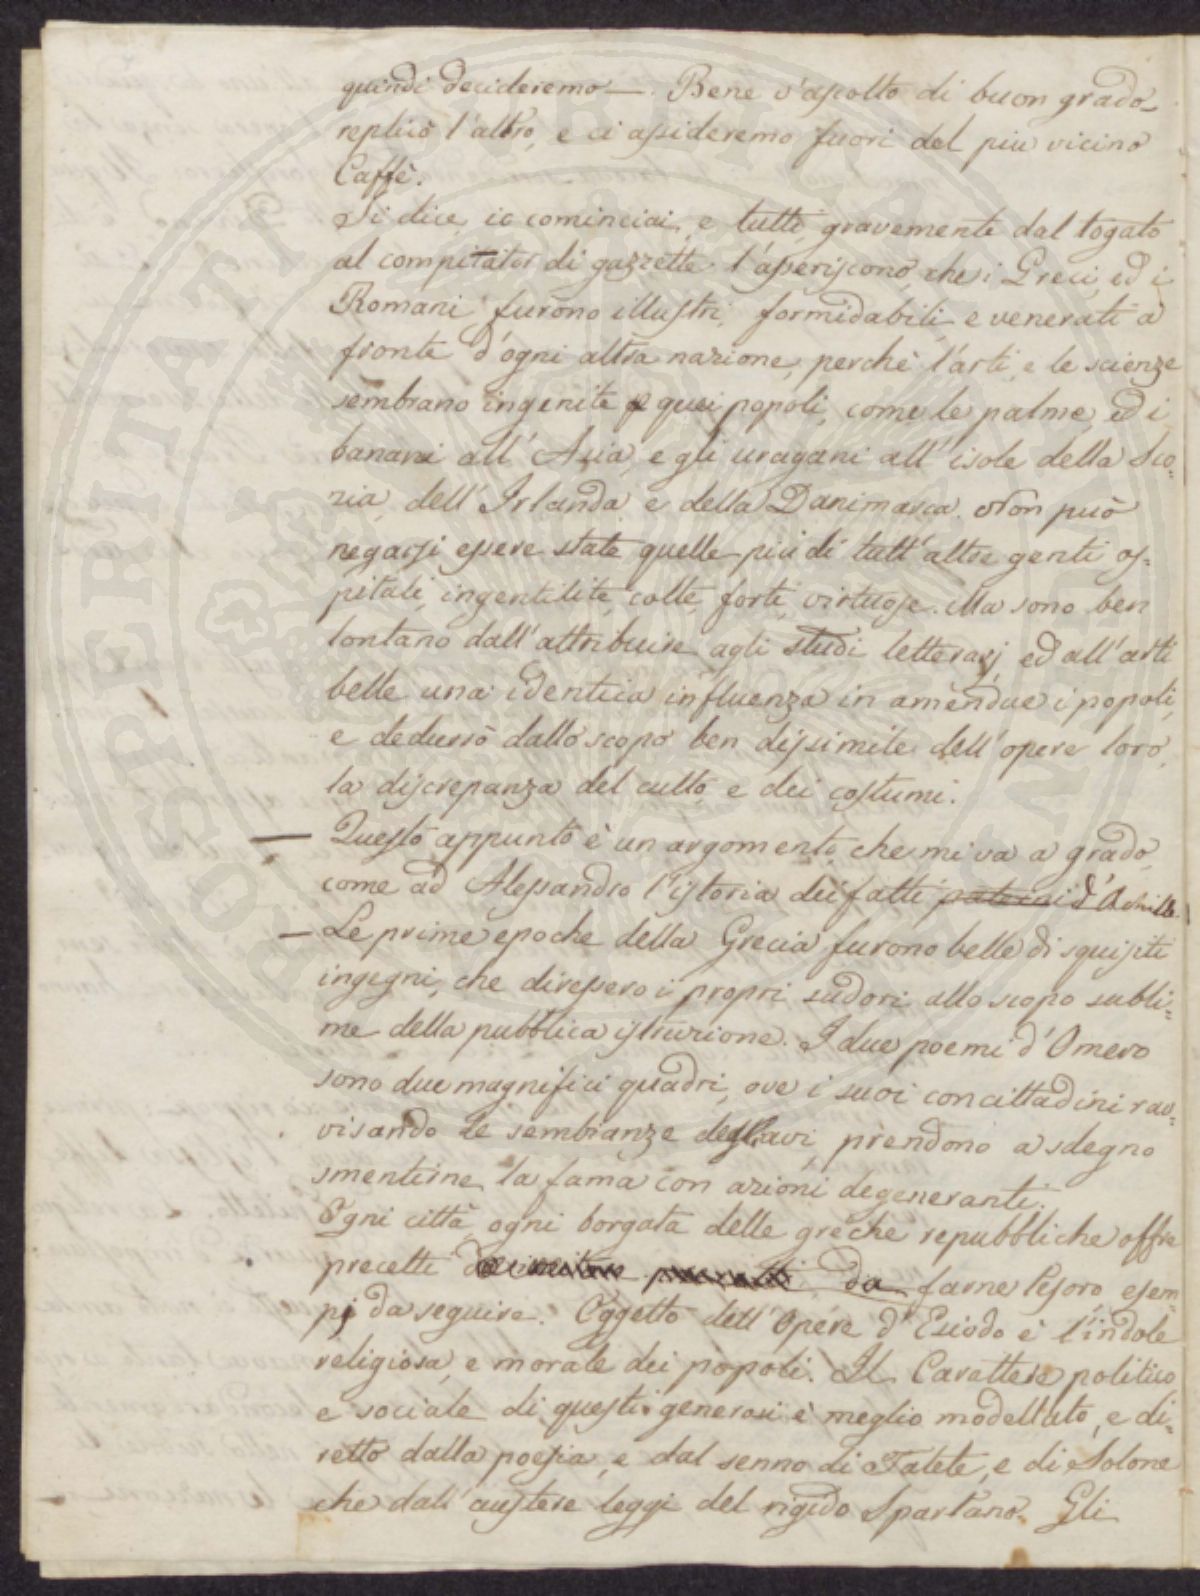 quindi decideremo —. Bene v'ascolto di buon grado
replicò l'altro, e ci assideremo fuori del più vicino
Caffè.
Si dice, io cominciai, e tutti gravemente dal togato
al compitator di gazzette l'asseriscono, che i Greci, ed i
Romani furono illustri, formidabili, e venerati a
fronte d'ogni altra nazione, perchè l'arti, e le scienze
sembrano ingenite a quei popoli, come le palme, ed i
banani all'Asia, e gli uragani all'isole della Sco-
zia, dell'Irlanda e della Danimarca. Non può
negarsi essere state quelle più di tutt'altre genti os-
pitali, ingentilite, colte, forti, virtuose. Ma sono ben
lontano dall'attribuire agli studi letterarj, ed all'arti
belle una identica influenza in amendue i popoli,
e dedurrò dallo scopo ben dissimile dell'opere loro,
la discrepanza del culto, e dei costumi.
— Questo appunto è un argomento, che mi va a grado,
come ad Alessandro l'istoria dei fatti paterni d'Achille.
— Le prime epoche della Grecia furono belle di squisiti
ingegni, che diressero i propri sudori allo scopo subli-
me della pubblica istruzione. I due poemi d'Omero
sono due magnifici quadri, ove i suoi concittadini rav-
visando le sembianze degli avi, prendono a sdegno
smentirne la fama con azioni degeneranti.
Ogni città, ogni borgata delle greche repubbliche offre
precetti da farne tesoro esem-
pj da seguire. Oggetto dell'Opere d'Esiodo è l'indole
religiosa, e morale dei popoli. Il Carattere politico
e sociale di questi generosi è meglio modellato, e di-
retto dalla poesia, e dal senno di Talete, e di Solone
che dall'austere leggi del rigido Spartano. Gli
PROSPERITATI PUBLICAE